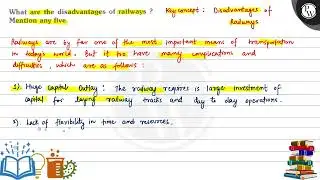 What are the disadvantages of railways ?
Mention any five.
Key concept : Disadvantages of
Railways
Railways are by far one of the most important means of transportation
in today's world. But it too have many complications and
difficulties which are as follows :
1). Huge Capital Outlay : The railway requires is large investment of
capital for laying railway tracks and day to day operations.
2). Lack of flexibility in time and resources.